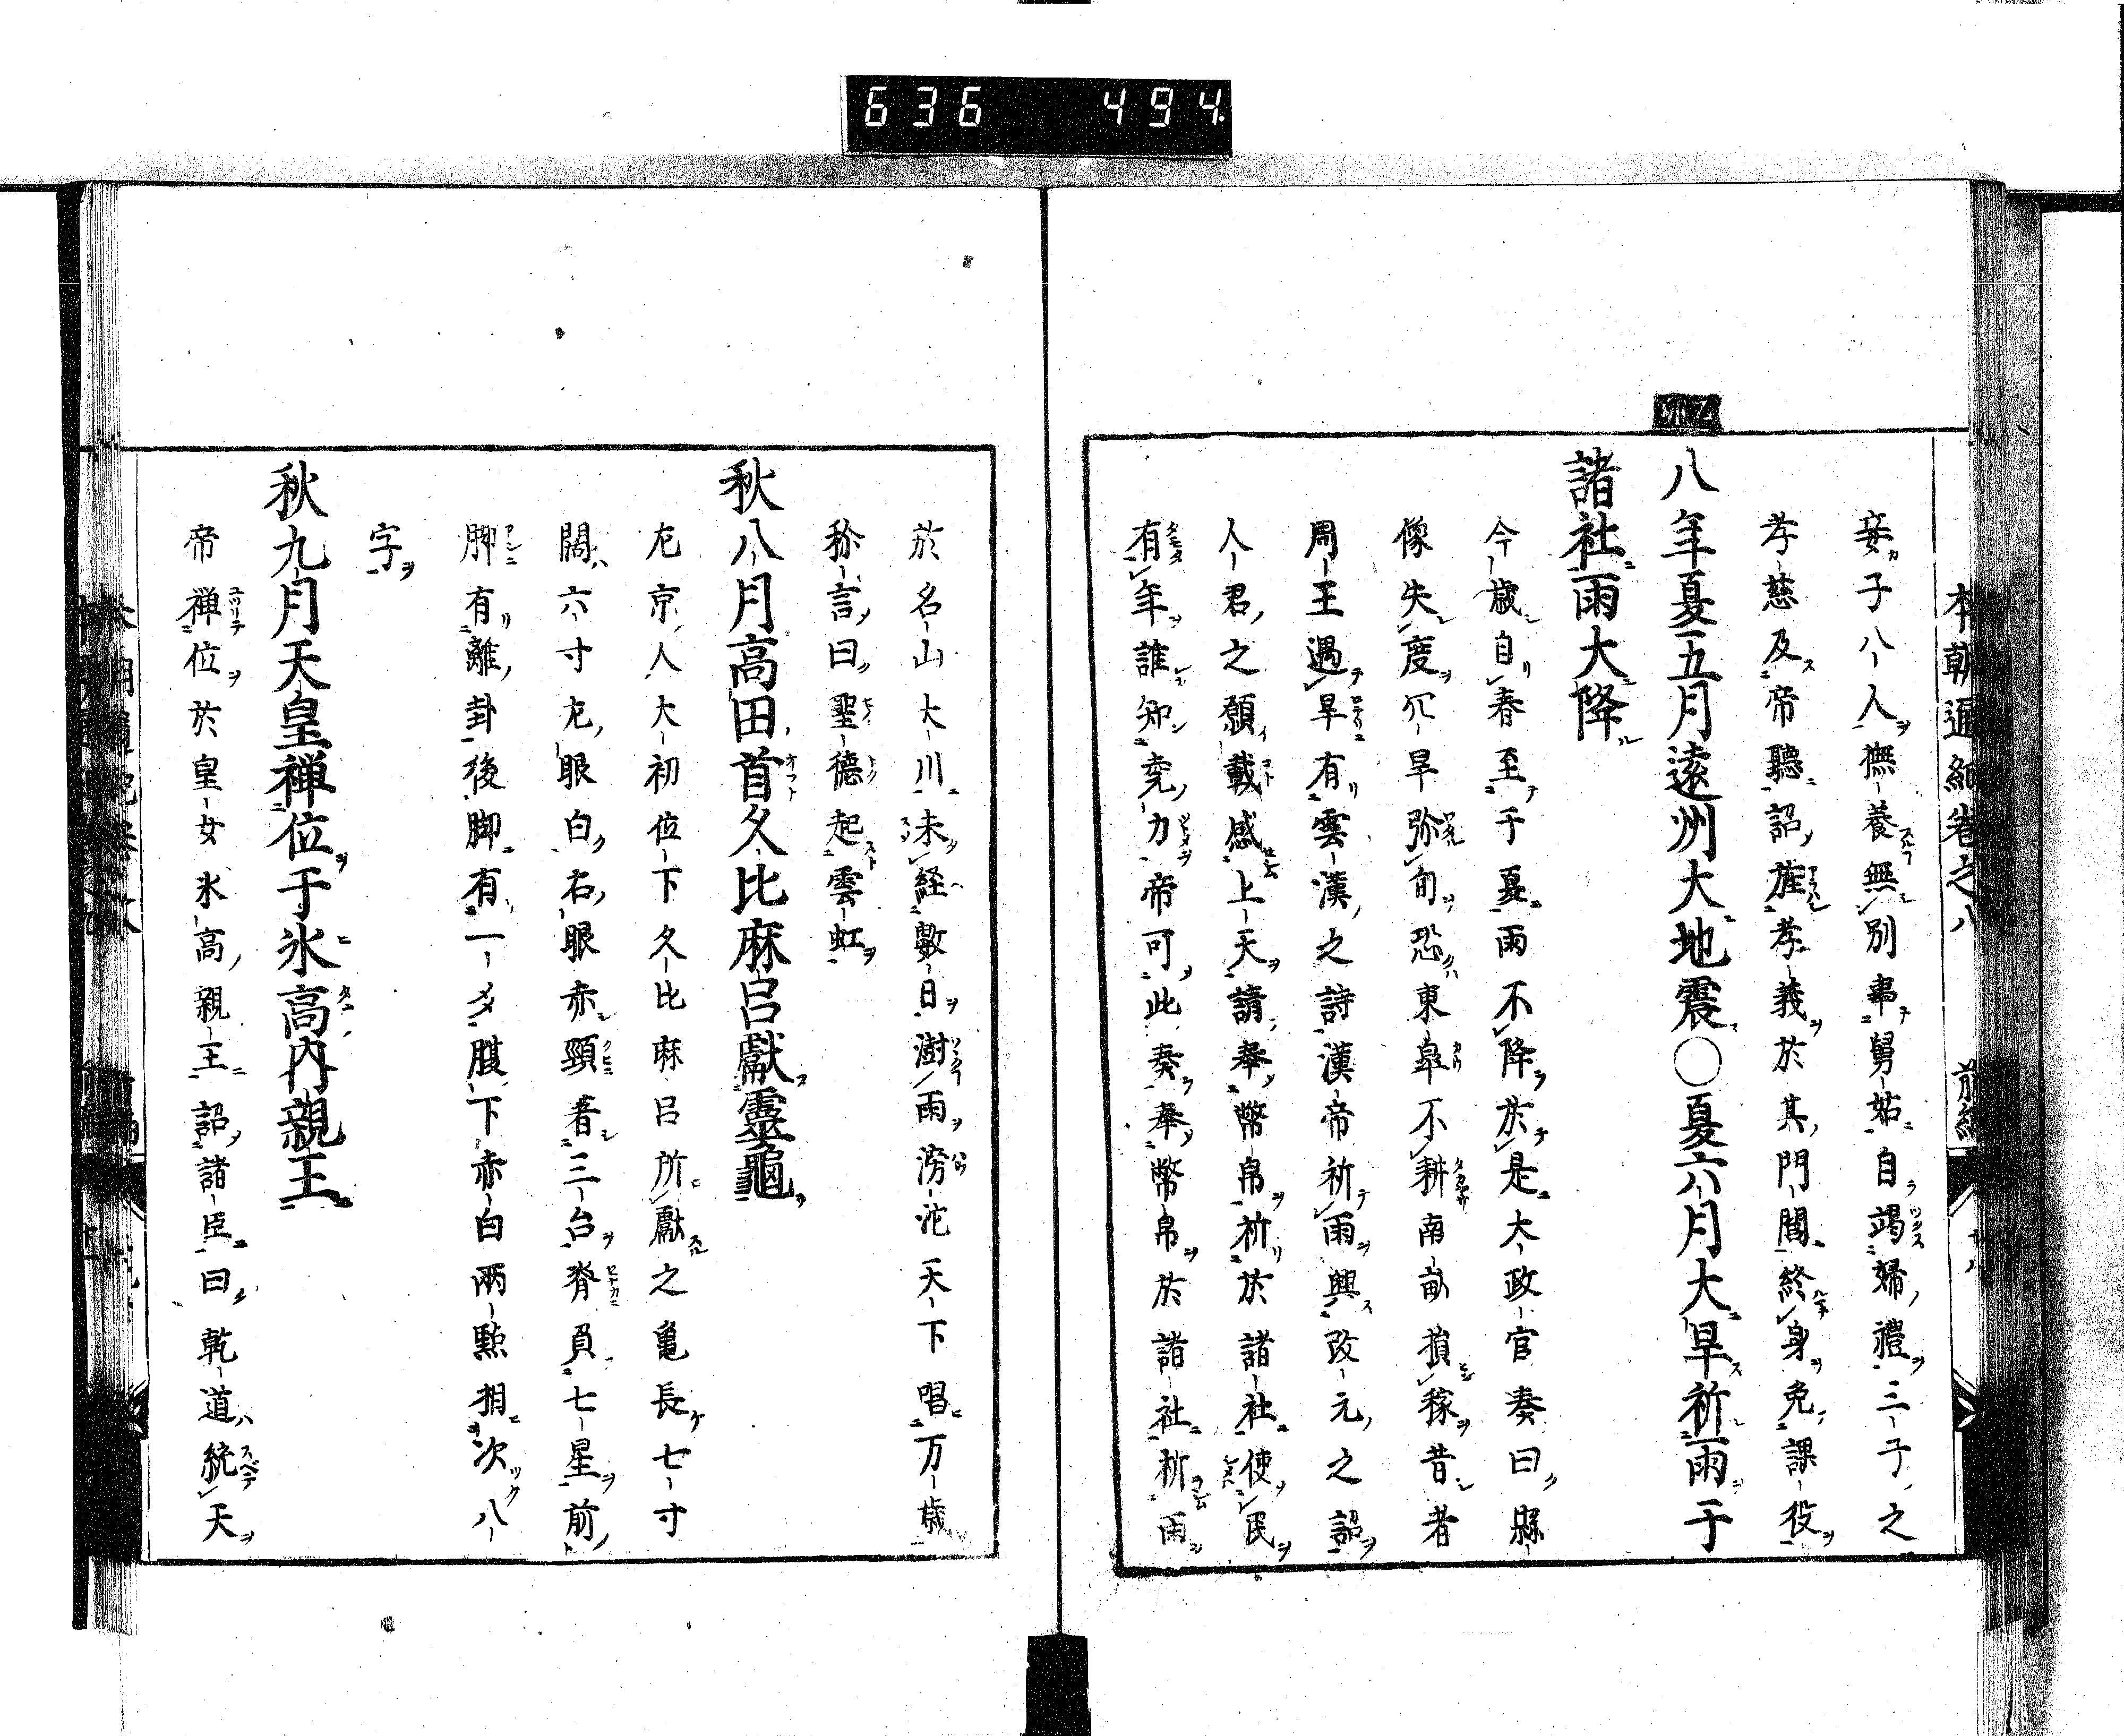 636 494
本朝通紀卷之八 前編
妾子八人撫養無別事舅姑自竭婦禮三子之
孝慈及帝聽詔旌孝義於其門閭終身免課役
乙卯
八年夏五月遠州大地震○夏六月大旱祈雨于
諸社雨大降
今歲自春至于夏雨不降於是大政官奏曰懸
像失度亢旱弥旬恐東皐不耕南畝損稼昔者
周王遇旱有雲漢之詩漢帝祈雨興改元之詔
人君之願載感上天請奉幣帛祈於諸社使民
有年誰知尭力帝可此奏奉幣帛於諸社祈雨
於名山大川未経數日澍雨滂沱天下唱万歲
称言曰聖德起雲虹
秋八月高田首久比麻呂獻靈龜
左京人大初位下久比麻呂所獻之亀長七寸
闊六寸左眼白右眼赤頸著三台脊負七星前
脚有離卦後脚有一爻腹下赤白兩點相次八
字
秋九月天皇禅位于氷高内親王
帝禅位於皇女氷高親王詔諸臣曰乾道統天